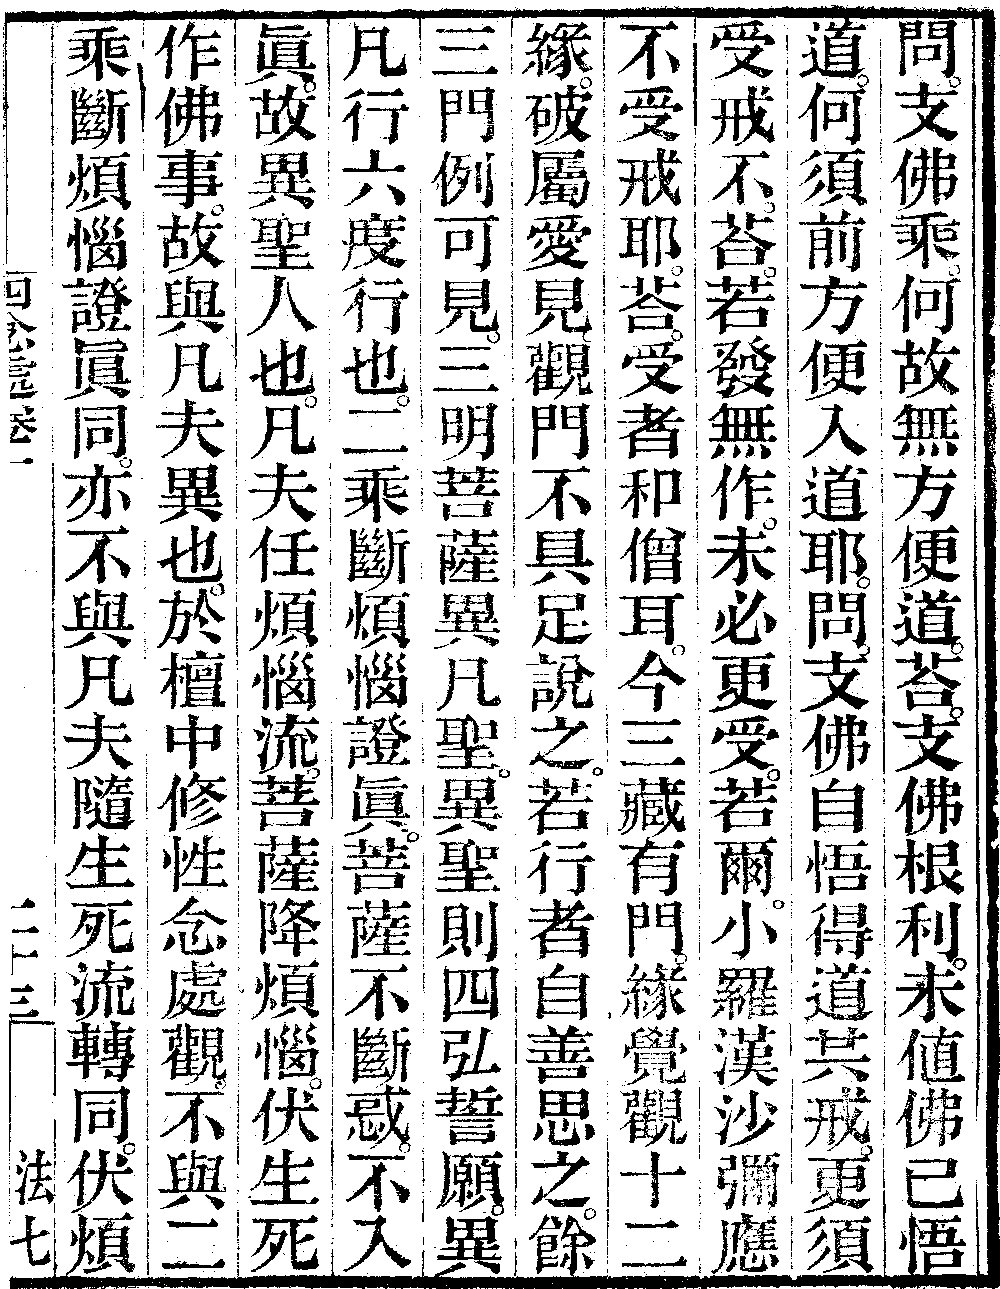 問。支佛乘。何故無方便道。荅。支佛根利。未値佛已悟
道。何須前方便入道耶。問。支佛自悟得道共戒。更須
受戒不。荅。若發無作。未必更受。若爾。小羅漢沙彌應
不受戒耶。荅。受者和僧耳。今三藏有門。緣覺觀十二
緣。破屬愛見。觀門不具足說之。若行者自善思之。餘
三門例可見。三明菩薩異凡聖。異聖則四弘誓願。異
凡行六度行也。二乘斷煩惱證眞。菩薩不斷惑。不入
眞。故異聖人也。凡夫任煩惱流。菩薩降煩惱。伏生死
作佛事。故與凡夫異也。於檀中修性念處觀。不與二
乘斷煩惱證眞同。亦不與凡夫隨生死流轉同。伏煩
四念處卷一 二十三 法七